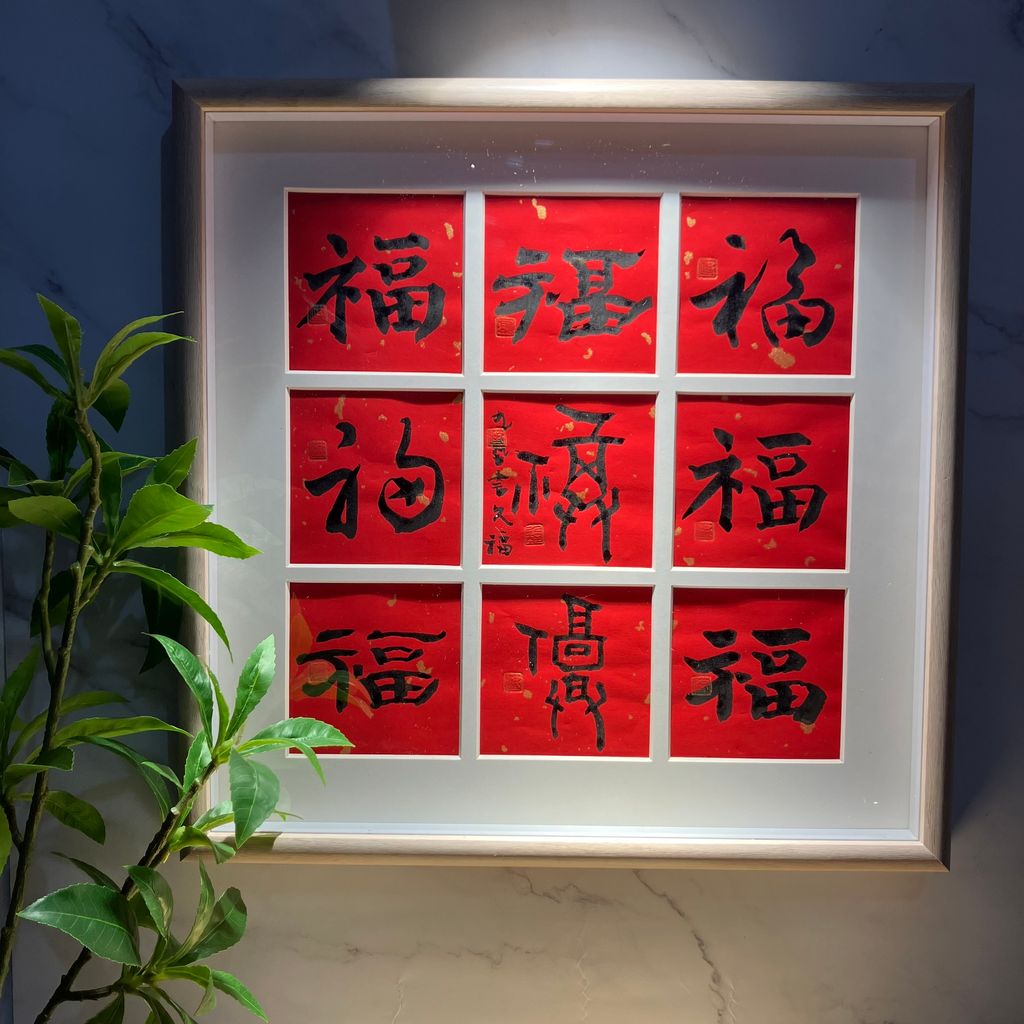 福 福 福
福 福 福
福
福 福 福